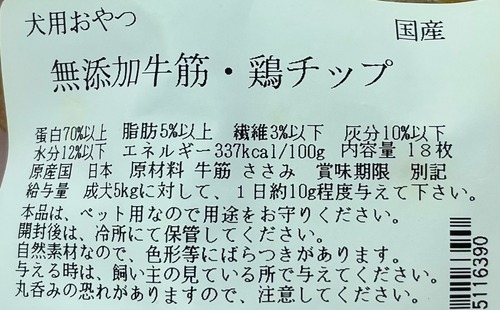 犬用おやつ 国産
無添加牛筋・鶏チップ
蛋白70%以上 脂肪5%以上 繊維3%以下 灰分10%以下
水分12%以下 エネルギー337kcal/100g 内容量 18枚
原産国 日本 原材料 牛筋 ささみ 賞味期限 別記
給与量 成犬5kgに対して、1日約10g程度与えて下さい。
本品は、ペット用なので用途をお守りください。
開封後は、冷所にて保管してください。
自然素材なので、色形等にばらつきがあります。
与える時は、飼い主の見ている所で与えてください。
丸呑みの恐れがありますので、注意してください。
5116390